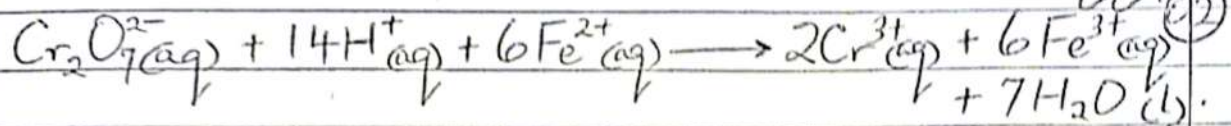 Cr₂O₇²⁻(aq) + 14H⁺(aq) + 6Fe²⁺(aq) ⟶ 2Cr³⁺(aq) + 6Fe³⁺(aq)
+ 7H₂O(l).